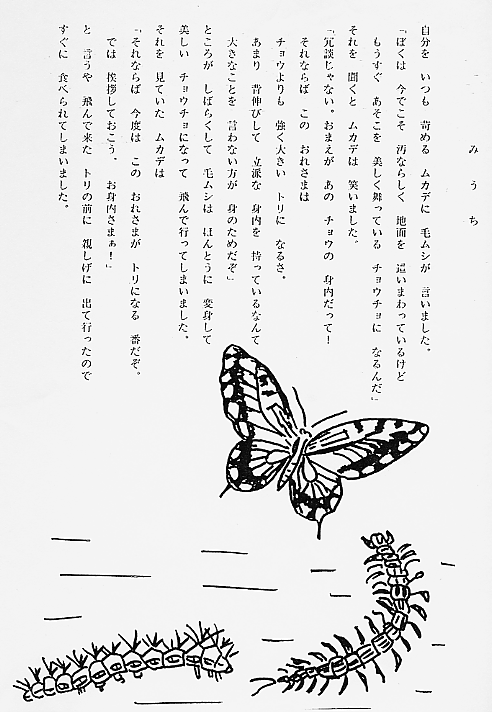 みうち
自分を いつも 苛める ムカデに 毛ムシが 言いました。
「ぼくは 今でこそ 汚ならしく 地面を 這いまわっているけど
もうすぐ あそこを 美しく舞っている チョウチョに なるんだ」
それを 聞くと ムカデは 笑いました。
「冗談じゃない。おまえが あの チョウの 身内だって!
それならば この おれさまは
チョウよりも 強く大きい トリに なるさ。
あまり 背伸びして 立派な 身内を 持っているなんて
大きなことを 言わない方が 身のためだぞ」
ところが しばらくして 毛ムシは ほんとうに 変身して
美しい チョウチョになって 飛んで行ってしまいました。
それを 見ていた ムカデは
「それならば 今度は この おれさまが トリになる 番だぞ。
では 挨拶しておこう。 お身内さまぁ!」
と 言うや 飛んで来た トリの前に 親しげに 出て行ったので
すぐに 食べられてしまいました。